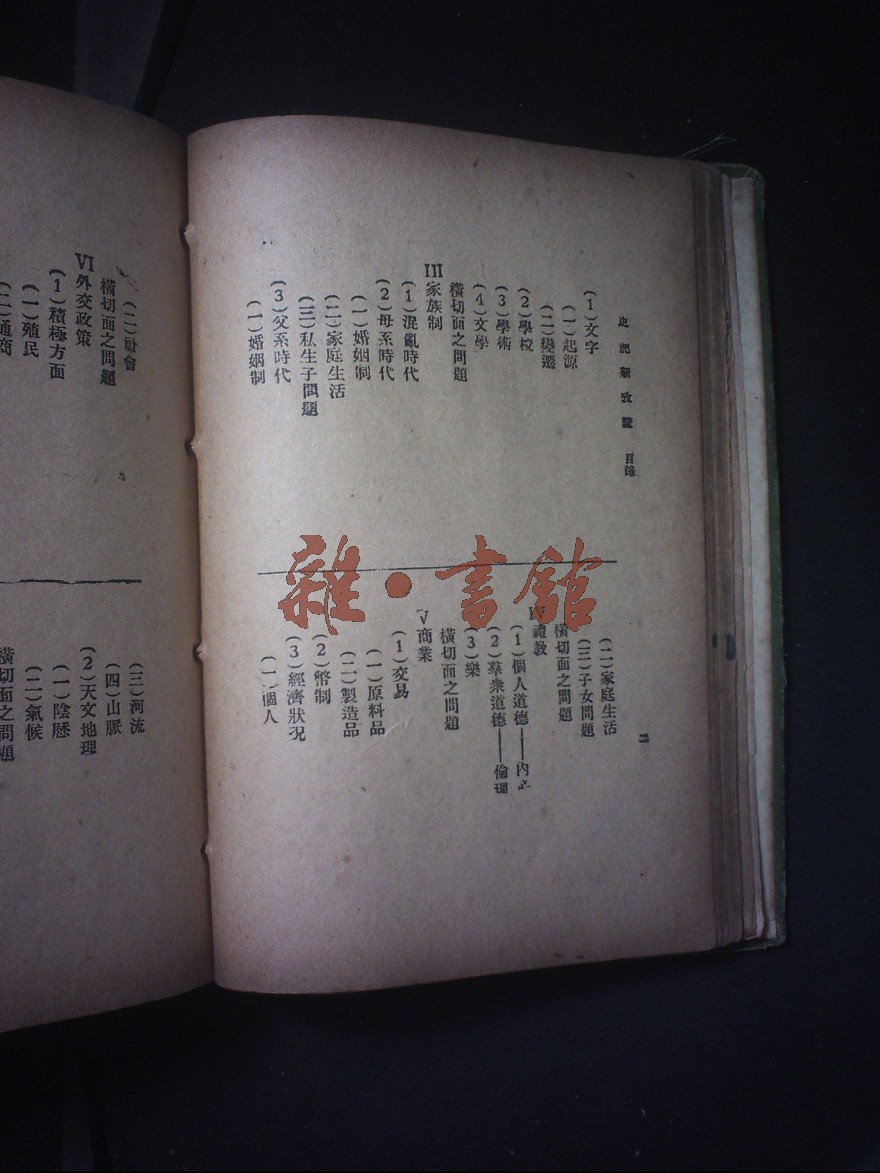 史記新攷證 目錄
二
(1)文字
(一)起源
(二)變遷
(2)學校
(3)學術
(4)文學
橫切面之問題
III家族制
(1)混亂時代
(2)母系時代
(一)婚姻制
(二)家庭生活
(三)私生子問題
(3)父系時代
(一)婚姻制
(二)家庭生活
(三)子女問題
橫切面之問題
IV禮敎
(1)個人道德——內
(2)羣衆道德——倫理
(3)樂
橫切面之問題
V商業
(1)交易
(一)原料品
(二)製造品
(2)幣制
(3)經濟狀況
(一)個人
(二)社會
橫切面之問題
VI外交政策
(1)積極方面
(一)殖民
(二)通商
(三)河流
(四)山脈
(2)天文地理
(一)陰歷
(二)氣候
橫切面之問題
雜·書館